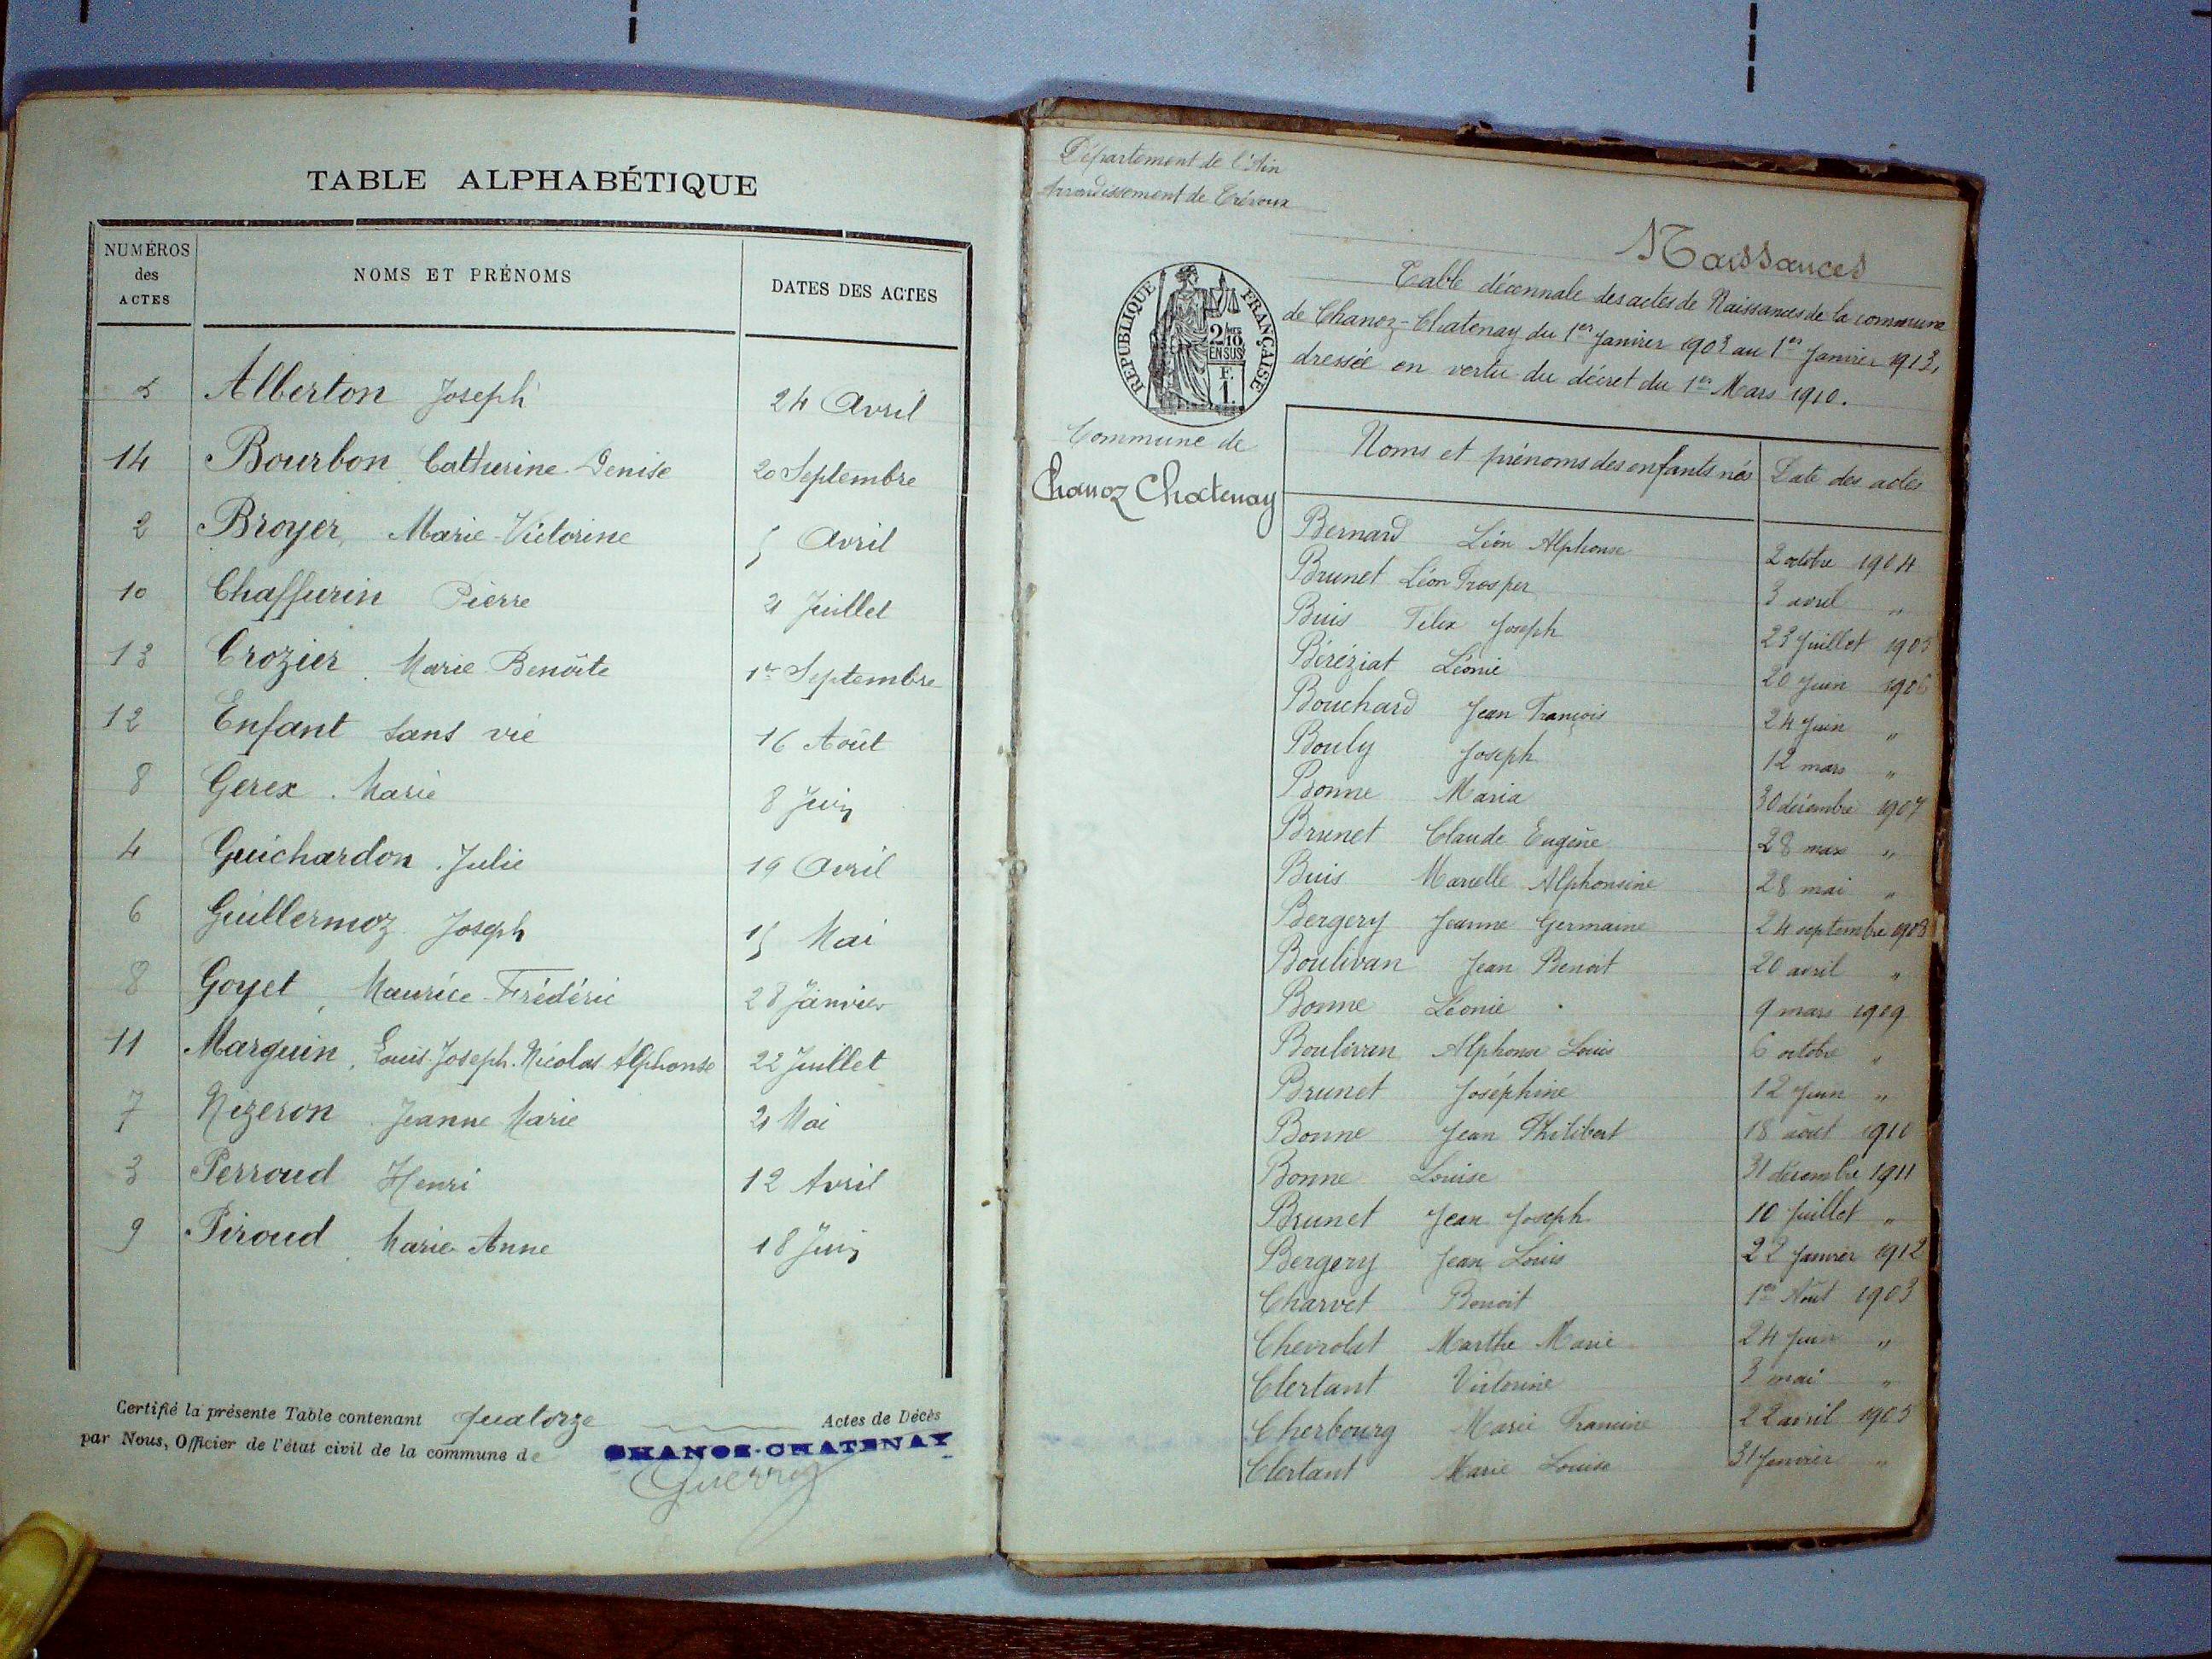 TABLE ALPHABÉTIQUE
NUMÉROS des ACTES NOMS ET PRÉNOMS DATES DES ACTES
5 Alberton Joseph 24 Avril
14 Bourbon Catherine-Denise 20 Septembre
2 Broyer, Marie-Victorine 5 Avril
10 Chaffurin Pierre 21 Juillet
13 Crozier. Marie-Benoîte 1er Septembre
12 Enfant sans vie 16 Août
8 Gerex. Marie 8 Juin
4 Guichardon. Julie 19 Avril
6 Guillermoz Joseph 15 Mai
8 Goyet, Maurice-Frédéric 28 Janvier
11 Marguin, Louis-Joseph-Nicolas-Alphonse 22 Juillet
7 Nezeron Jeanne Marie 21 Mai
3 Perroud Henri 12 Avril
9 Piroud Marie-Anne 18 Juin
Certifié la présente Table contenant quatorze Actes de Décès
par Nous, Officier de l'état civil de la commune de CHANOZ-CHATENAY
Département de l'Ain
Arrondissement de Trévoux
Naissances
RÉPUBLIQUE FRANÇAISE
2/10 EN SUS
F. 1.
Table décennale des actes de Naissances de la commune
de Chanoz-Chatenay du 1er Janvier 1903 au 1er Janvier 1913,
dressée en vertu du décret du 1er Mars 1910.
Commune de
Chanoz Chatenay
Noms et prénoms des enfants nés Date des actes
Bernard Léon Alphonse 2 octobre 1904
Brunet Léon Prosper 3 avril "
Buis Félix Joseph 23 Juillet 1905
Béréziat Léonie 20 Juin 1906
Bouchard Jean François 24 Juin "
Bouly Joseph 12 mars "
Bonne Maria 30 décembre 1907
Brunet Claude Eugène 28 mars "
Buis Marcelle Alphonsine 28 mai "
Bergery Jeanne Germaine 24 septembre 1908
Boulivan Jean Benoit 20 avril "
Bonne Léonie 9 mars 1909
Boulivan Alphonse Louis 6 octobre "
Brunet Joséphine 12 Juin "
Bonne Jean Philibert 18 août 1910
Bonne Louise 31 décembre 1911
Brunet Jean Joseph 10 Juillet "
Bergery Jean Louis 22 Janvier 1912
Charvet Benoit 1er Août 1903
Chevrolat Marthe Marie 24 Juin "
Clertant Victorine 3 mai "
Cherbourg Marie Francine 22 avril 1905
Clertant Marie Louise 31 Janvier "